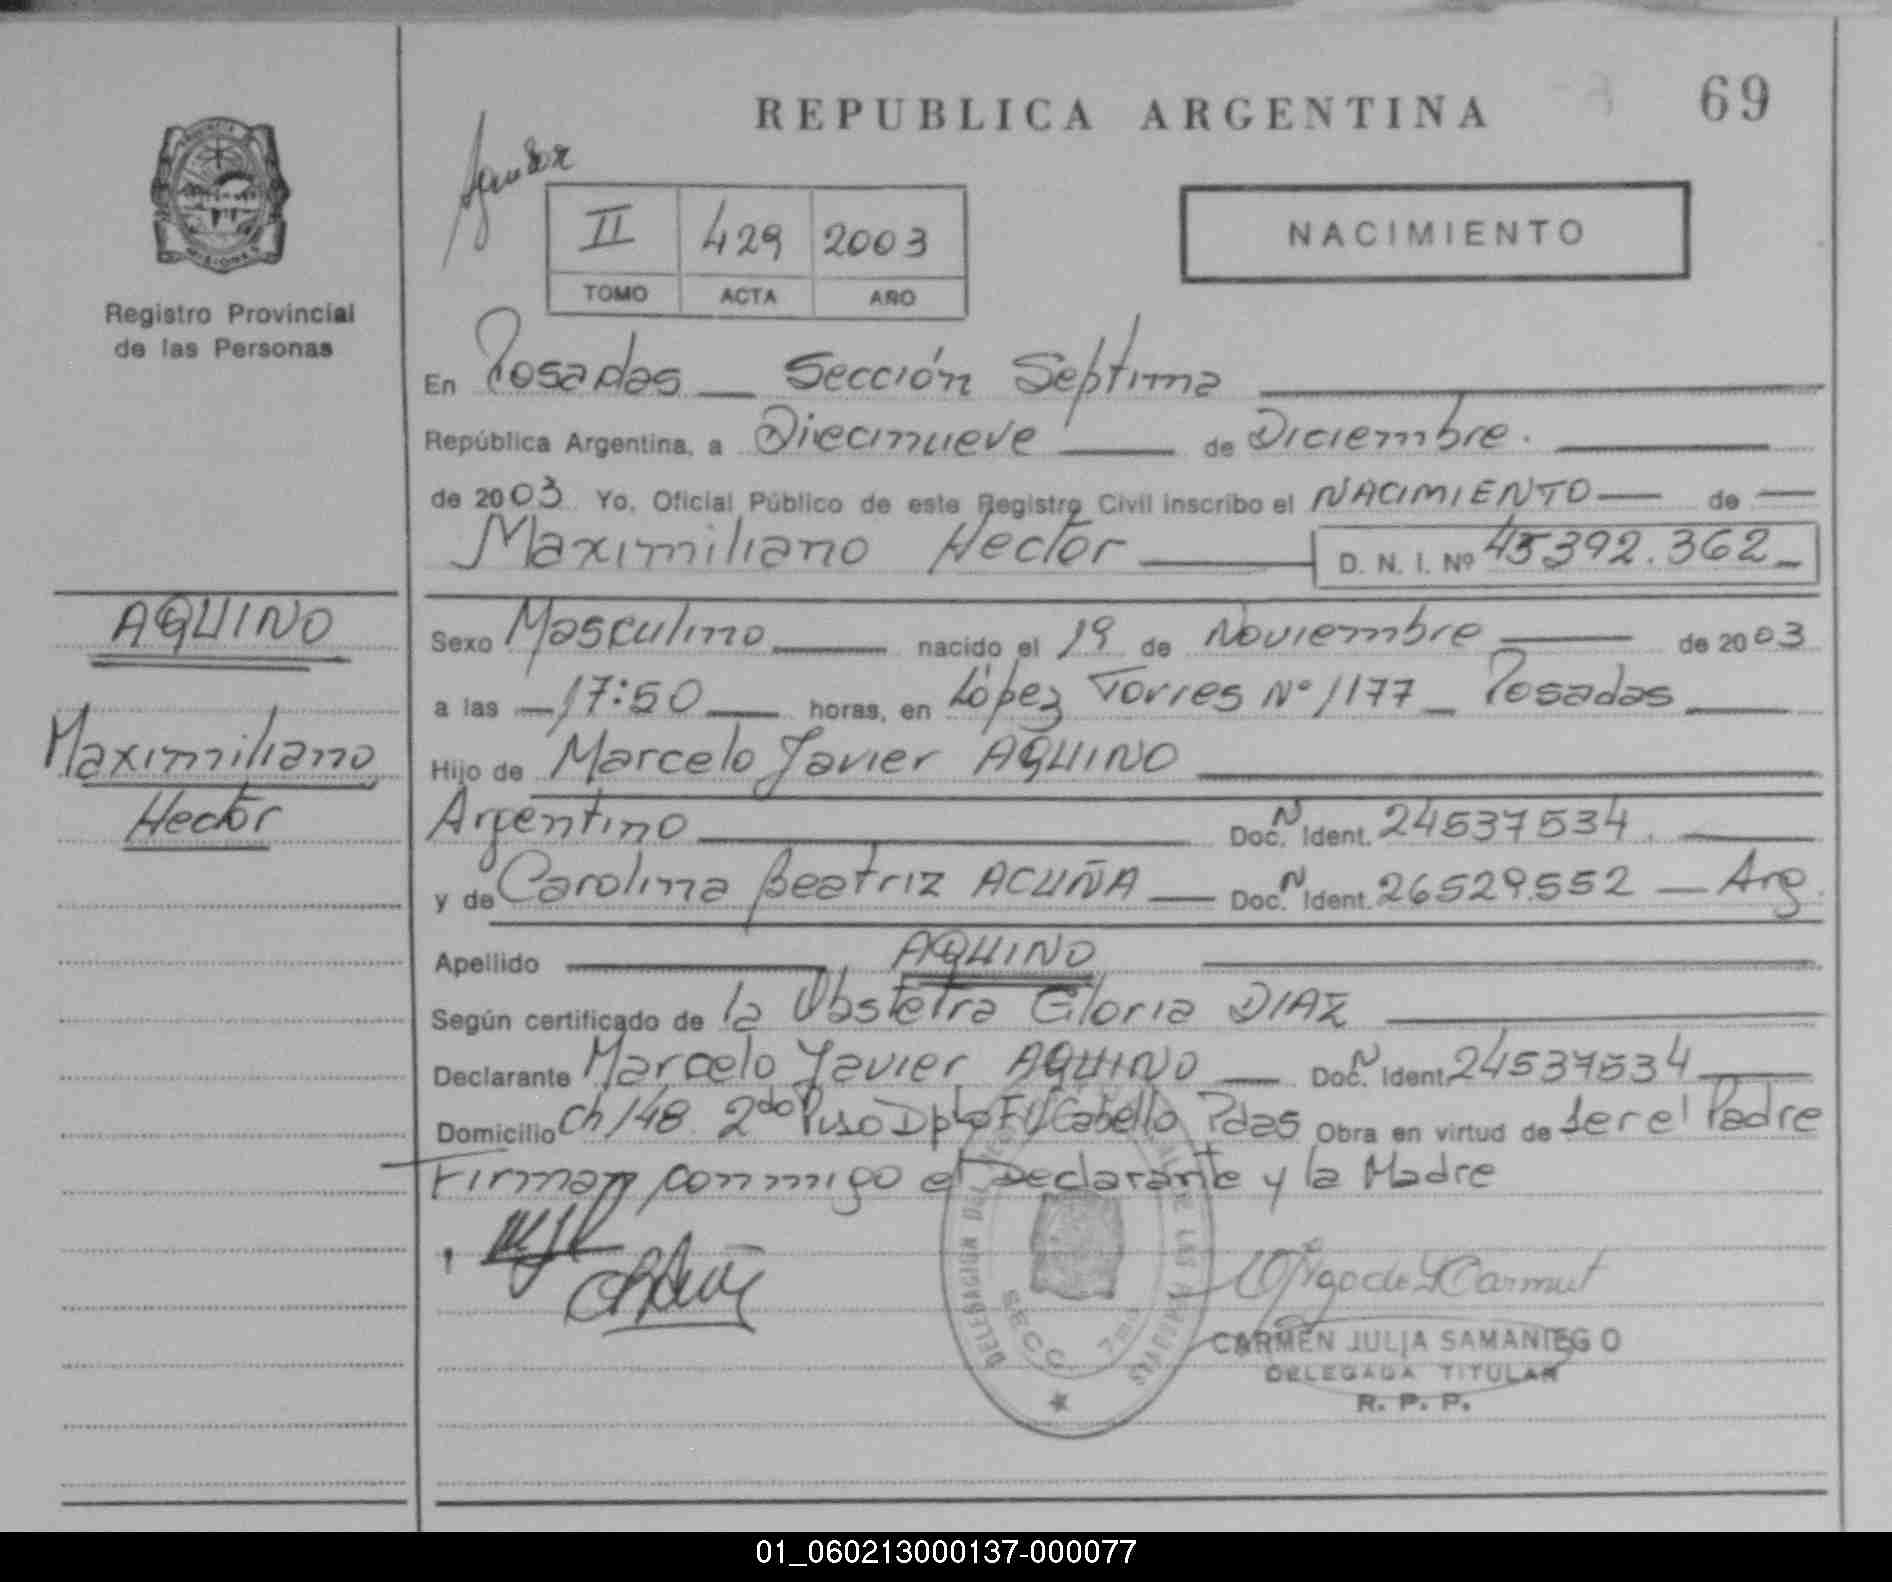 REPUBLICA ARGENTINA
69
PROVINCIA DE MISIONES
Registro Provincial
de las Personas
II 429 2003
TOMO ACTA AÑO
NACIMIENTO
En Posadas — Sección Septima
República Argentina, a Diecinueve de Diciembre.
de 2003 Yo, Oficial Público de este Registro Civil inscribo el NACIMIENTO — de —
Maximiliano Hector D. N. I. Nº 45392.362
AQUINO
Maximiliano
Hector
Sexo Masculino nacido el 19 de Noviembre de 2003
a las 17:50 horas, en López Torres Nº 1177 — Posadas
Hijo de Marcelo Javier AQUINO
Argentino Doc. N Ident. 24537534
y de Carolina Beatriz ACUÑA — Doc. N Ident. 26529.552 — Arg.
Apellido AQUINO
Según certificado de la Obstetra Gloria DIAZ
Declarante Marcelo Javier AQUINO — Doc. N Ident. 24537534
Domicilio Ch 148 2do Piso Dpto Cabello Pdas Obra en virtud de ser el Padre
Firman conmigo el Declarante y la Madre
DELEGACION DEL LAS PERSONAS
SECC. 7ma.
CARMEN JULIA SAMANIEGO
DELEGADA TITULAR
R. P. P.
01_060213000137-000077